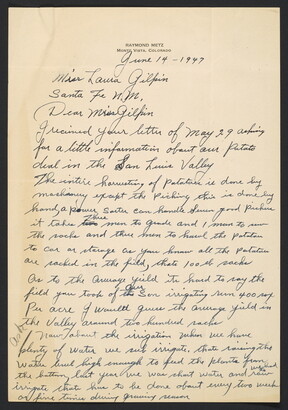 RAYMOND METZ
MONTE VISTA, COLORADO
June 14 - 1947
Miss Laura Gilpin
Santa Fe N.M.
Dear Miss Gilpin
I recieved your letter of May 29 asking
for a little information about our Potato
deal in the San Louis Valley
The intire harvesting of Potatoes is done by
machenery except the Picking this is done by
hand, a power Sorter can handle seven good Pickers
it takes three men to grade and 1 man to sew
the sacks and three men to haul the Potatoes
to car or storage as you know all the Potatoes
are sacked in the field, thats 100 lb sacks
As to the Average Yield its hard to say the
field you took of Our Son irrigating run 400 sax
Per acre I would guess the average yield in
the Valley around two hundred sacks
Now about the irrigation when we have
plenty of water we sub irrigate, thats raising the
water level high enough to feed the plants from
the bottom, last year we was short water and
irigate thats has to be done about every two weeks
or five times during growing season